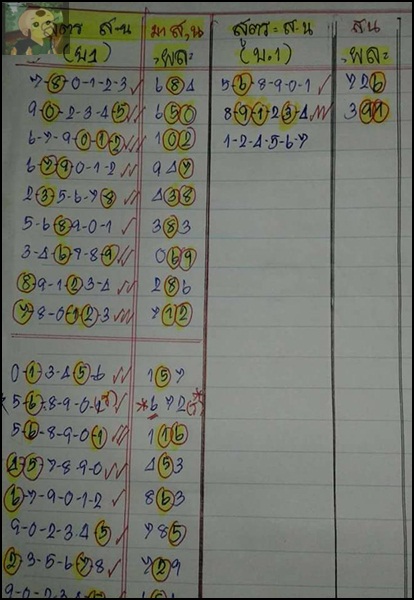 สูตร ส-น มา ส,น สูตร = ส-น ส น
(บ.1) ,ผล= (บ.1) ,ผล=
7-8-0-1-2-3 684 5-6-8-9-0-1 726
9-0-2-3-4-5 650 8-9-1-2-3-4 391
6-7-9-0-1-2 102 1-2-4-5-6-7
6-7-9-0-1-2 947
2-3-5-6-7-8 438
5-6-8-9-0-1 383
3-4-6-7-8-9 069
8-9-1-2-3-4 286
7-8-0-1-2-3 712
0-1-3-4-5-6 157
5-6-8-9-0-1 *672
5-6-8-9-0-1 116
4-5-7-8-9-0 453
6-7-9-0-1-2 863
9-0-2-3-4-5 785
2-3-5-6-7-8 729
9-0-2-3-4